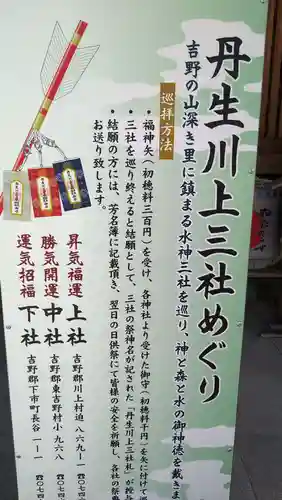 丹生川上三社めぐり
吉野の山深き里に鎮まる水神三社を巡り、神と森と水の御神徳を戴きま
巡拝方法
・福神矢(初穂料三百円)を受け、各神社より受けた御守(初穂料千円)を矢に付けて
・三社を巡り終えると結願として、三社の祭神名が記された「丹生川上三社札」が授
・結願の方には、芳名簿に記載頂き、翌日の日供祭にて皆様の安全を祈願し、各社の祭
お送り致します。
昇気福運 上社 吉野郡川上村迫 八六九ー一 ☎〇七四
勝気開運 中社 吉野郡東吉野村小 九六八 ☎〇七四
運気招福 下社 吉野郡下市町長谷 一ー一 ☎〇七四